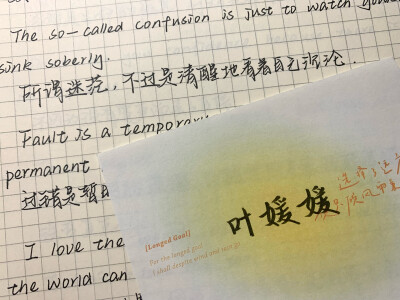 The so-called confusion is just to watch
sink soberly.
所谓迷茫，不过是清醒地看着自己沉沦.
Fault is a temporary
permanent
过错是暂时
I love the
the world can
[Longed Goal]
For the longed goal
I shall despite wind and rain go
叶媛媛